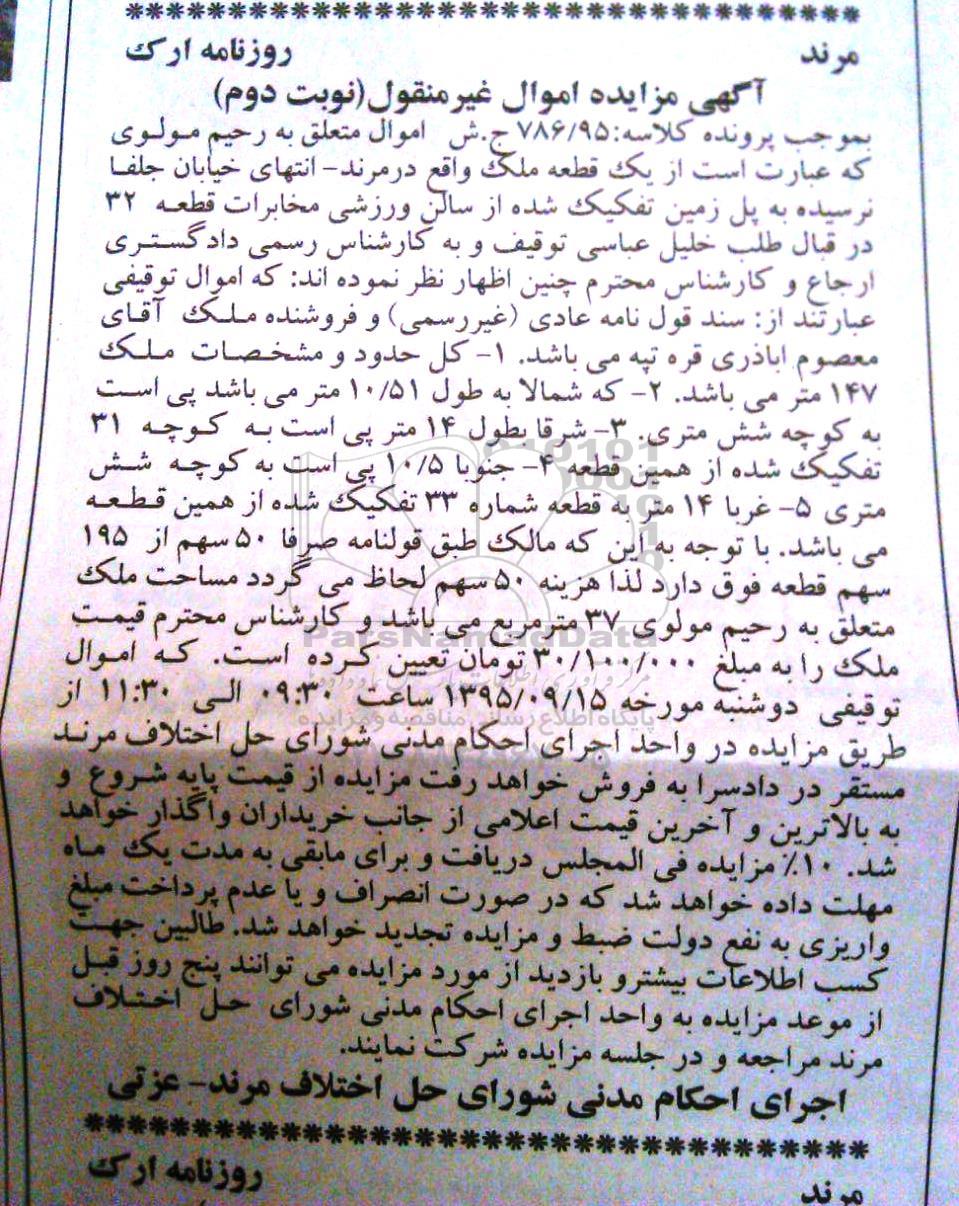 ********************************
مرند روزنامه ارک
آگهی مزایده اموال غیرمنقول(نوبت دوم)
بموجب پرونده کلاسه:۷۸۶/۹۵ ج.ش اموال متعلق به رحیم مولوی
که عبارت است از یک قطعه ملک واقع درمرند- انتهای خیابان جلفا
نرسیده به پل زمین تفکیک شده از سالن ورزشی مخابرات قطعه ۳۲
در قبال طلب خلیل عباسی توقیف و به کارشناس رسمی دادگستری
ارجاع و کارشناس محترم چنین اظهار نظر نموده اند: که اموال توقیفی
عبارتند از: سند قول نامه عادی (غیررسمی) و فروشنده ملک آقای
معصوم اباذری قره تپه می باشد. ۱- کل حدود و مشخصات ملک
۱۴۷ متر می باشد. ۲- که شمالا به طول ۱۰/۵۱ متر می باشد پی است
به کوچه شش متری. ۳- شرقا بطول ۱۴ متر پی است به کوچه ۳۱
تفکیک شده از همین قطعه ۴- جنوبا ۱۰/۵ پی است به کوچه شش
متری ۵- غربا ۱۴ متر به قطعه شماره ۳۳ تفکیک شده از همین قطعه
می باشد. با توجه به این که مالک طبق قولنامه صرفا ۵۰ سهم از ۱۹۵
سهم قطعه فوق دارد لذا هزینه ۵۰ سهم لحاظ می گردد مساحت ملک
متعلق به رحیم مولوی ۳۷ مترمربع می باشد و کارشناس محترم قیمت
ملک را به مبلغ ۳۰/۱۰۰/۰۰۰ تومان تعیین کرده است. که اموال
توقیفی دوشنبه مورخه ۱۳۹۵/۰۹/۱۵ ساعت ۰۹:۳۰ الی ۱۱:۳۰ از
طریق مزایده در واحد اجرای احکام مدنی شورای حل اختلاف مرند
مستقر در دادسرا به فروش خواهد رفت مزایده از قیمت پایه شروع و
به بالاترین و آخرین قیمت اعلامی از جانب خریداران واگذار خواهد
شد. ۱۰٪ مزایده فی المجلس دریافت و برای مابقی به مدت یک ماه
مهلت داده خواهد شد که در صورت انصراف و یا عدم پرداخت مبلغ
واریزی به نفع دولت ضبط و مزایده تجدید خواهد شد. طالبین جهت
کسب اطلاعات بیشترو بازدید از مورد مزایده می توانند پنج روز قبل
از موعد مزایده به واحد اجرای احکام مدنی شورای حل اختلاف
مرند مراجعه و در جلسه مزایده شرکت نمایند.
اجرای احکام مدنی شورای حل اختلاف مرند- عزتی
********************************
مرند روزنامه ارک
ParsNamadData
پایگاه اطلاع رسانی مناقصه و مزایده